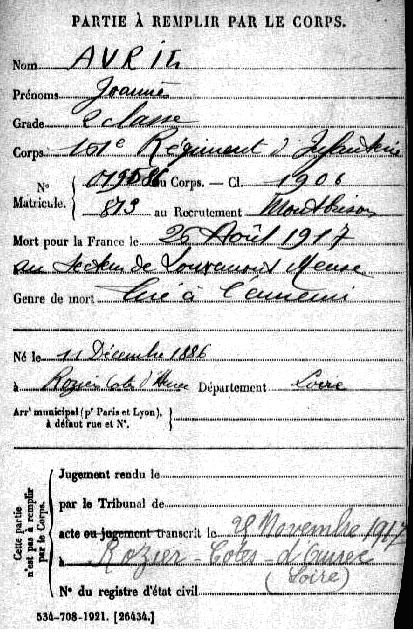 PARTIE À REMPLIR PAR LE CORPS.
Nom AVRIL
Prénoms Joannès
Grade 2 classe
Corps 101e Régiment d'Infanterie
N° Matricule. { au Corps. — Cl. 1906
813 au Recrutement Montbrison
Mort pour la France le 26 Août 1917
au secteur de Louvemont Meuse
Genre de mort tué à l'ennemi
Né le 11 Décembre 1886
à Rozier Cotes d'Aurec Département Loire
Arr^t municipal (p^r Paris et Lyon), à défaut rue et N°. }
Cette partie n'est pas à remplir par le Corps. {
Jugement rendu le
par le Tribunal de
acte ou jugement transcrit le 28 Novembre 1917
à Rozier-Cotes-d'Aurec
(Loire)
N° du registre d'état civil
534-708-1921. [26434.]